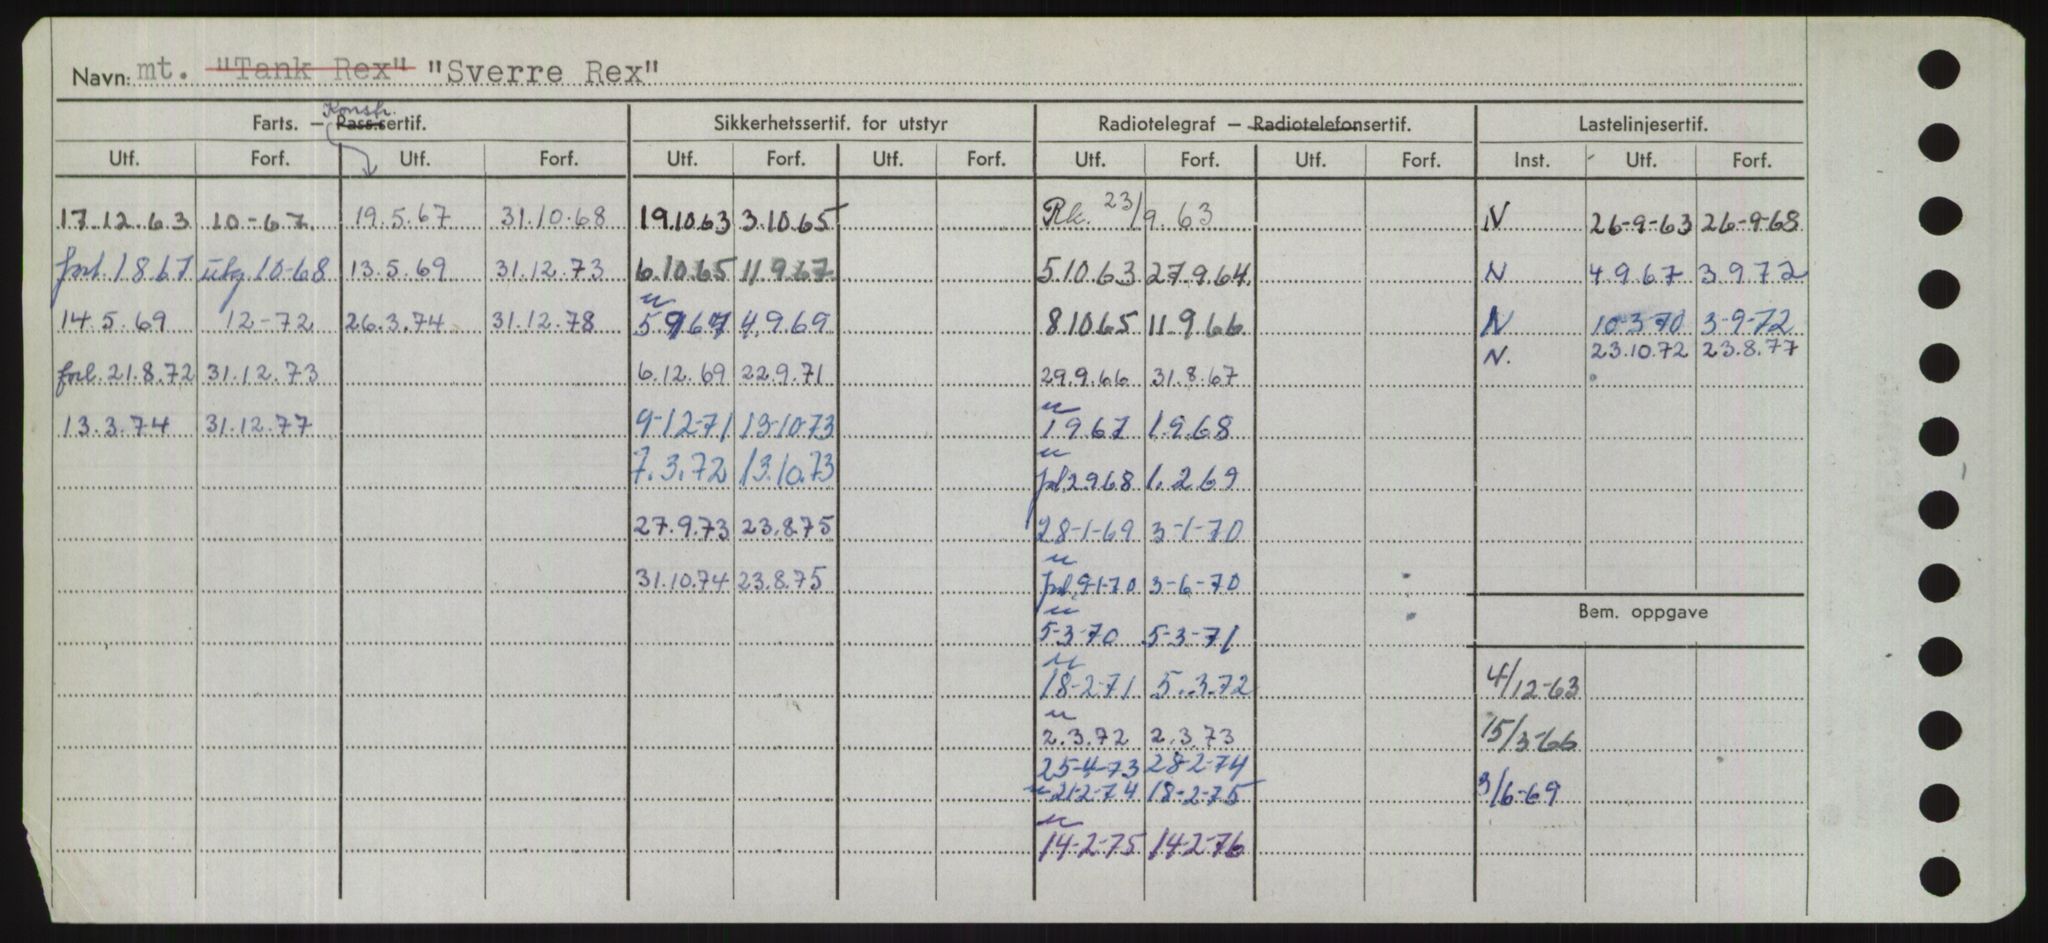 Navn: mt. "Tank Rex" "Sverre Rex"
Konstr.
Farts. — Pass.sertif. Sikkerhetssertif. for utstyr Radiotelegraf — Radiotelefonsertif. Lastelinjesertif.
Utf. Forf. Utf. Forf. Utf. Forf. Utf. Forf. Utf. Forf. Utf. Forf. Inst. Utf. Forf.
17.12.63 10-67. 19.5.67 31.10.68 19.10.63 3.10.65 Rk. 23/9.63 N 26-9-63 26-9-68
forl. 1.8.67 utg. 10-68 13.5.69 31.12.73 6.10.65 11.9.67 5.10.63 27.9.64. N 4.9.67 3.9.72
14.5.69 12-72 26.3.74 31.12.78 5.9.67 4.9.69 8.10.65 11.9.66 N 10-3-70 3-9-72
N. 23.10.72 23.8.77
forl. 21.8.72 31.12.73 6.12.69 22.9.71 29.9.66 31.8.67
13.3.74 31.12.77 9-12-71 13-10-73 1.9.67 1.9.68
7.3.72 13.10.73 forl 2.9.68 1.2.69
27.9.73 23.8.75 28-1-69 3-1-70
31.10.74 23.8.75 forl. 9-1-70 3-6-70
Bem. oppgave
5-3-70 5-3-71
18-2-71 5.3.72 4/12-63
2.3.72 2.3.73 15/3-66
25-4-73 28-2-74
21-2-74 18-2-75 3/6-69
14-2-75 14-2-76